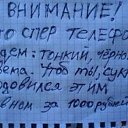 ВНИМАНИЕ!
ТО СПЕР ТЕЛЕФО
ДЕМ: ТОНКИЙ, ЧЁРНО
ВЕТА. Чтоб ты, сук
ДОВИЛСЯ ЭТИМ
ВНОМ за 1000 рублей